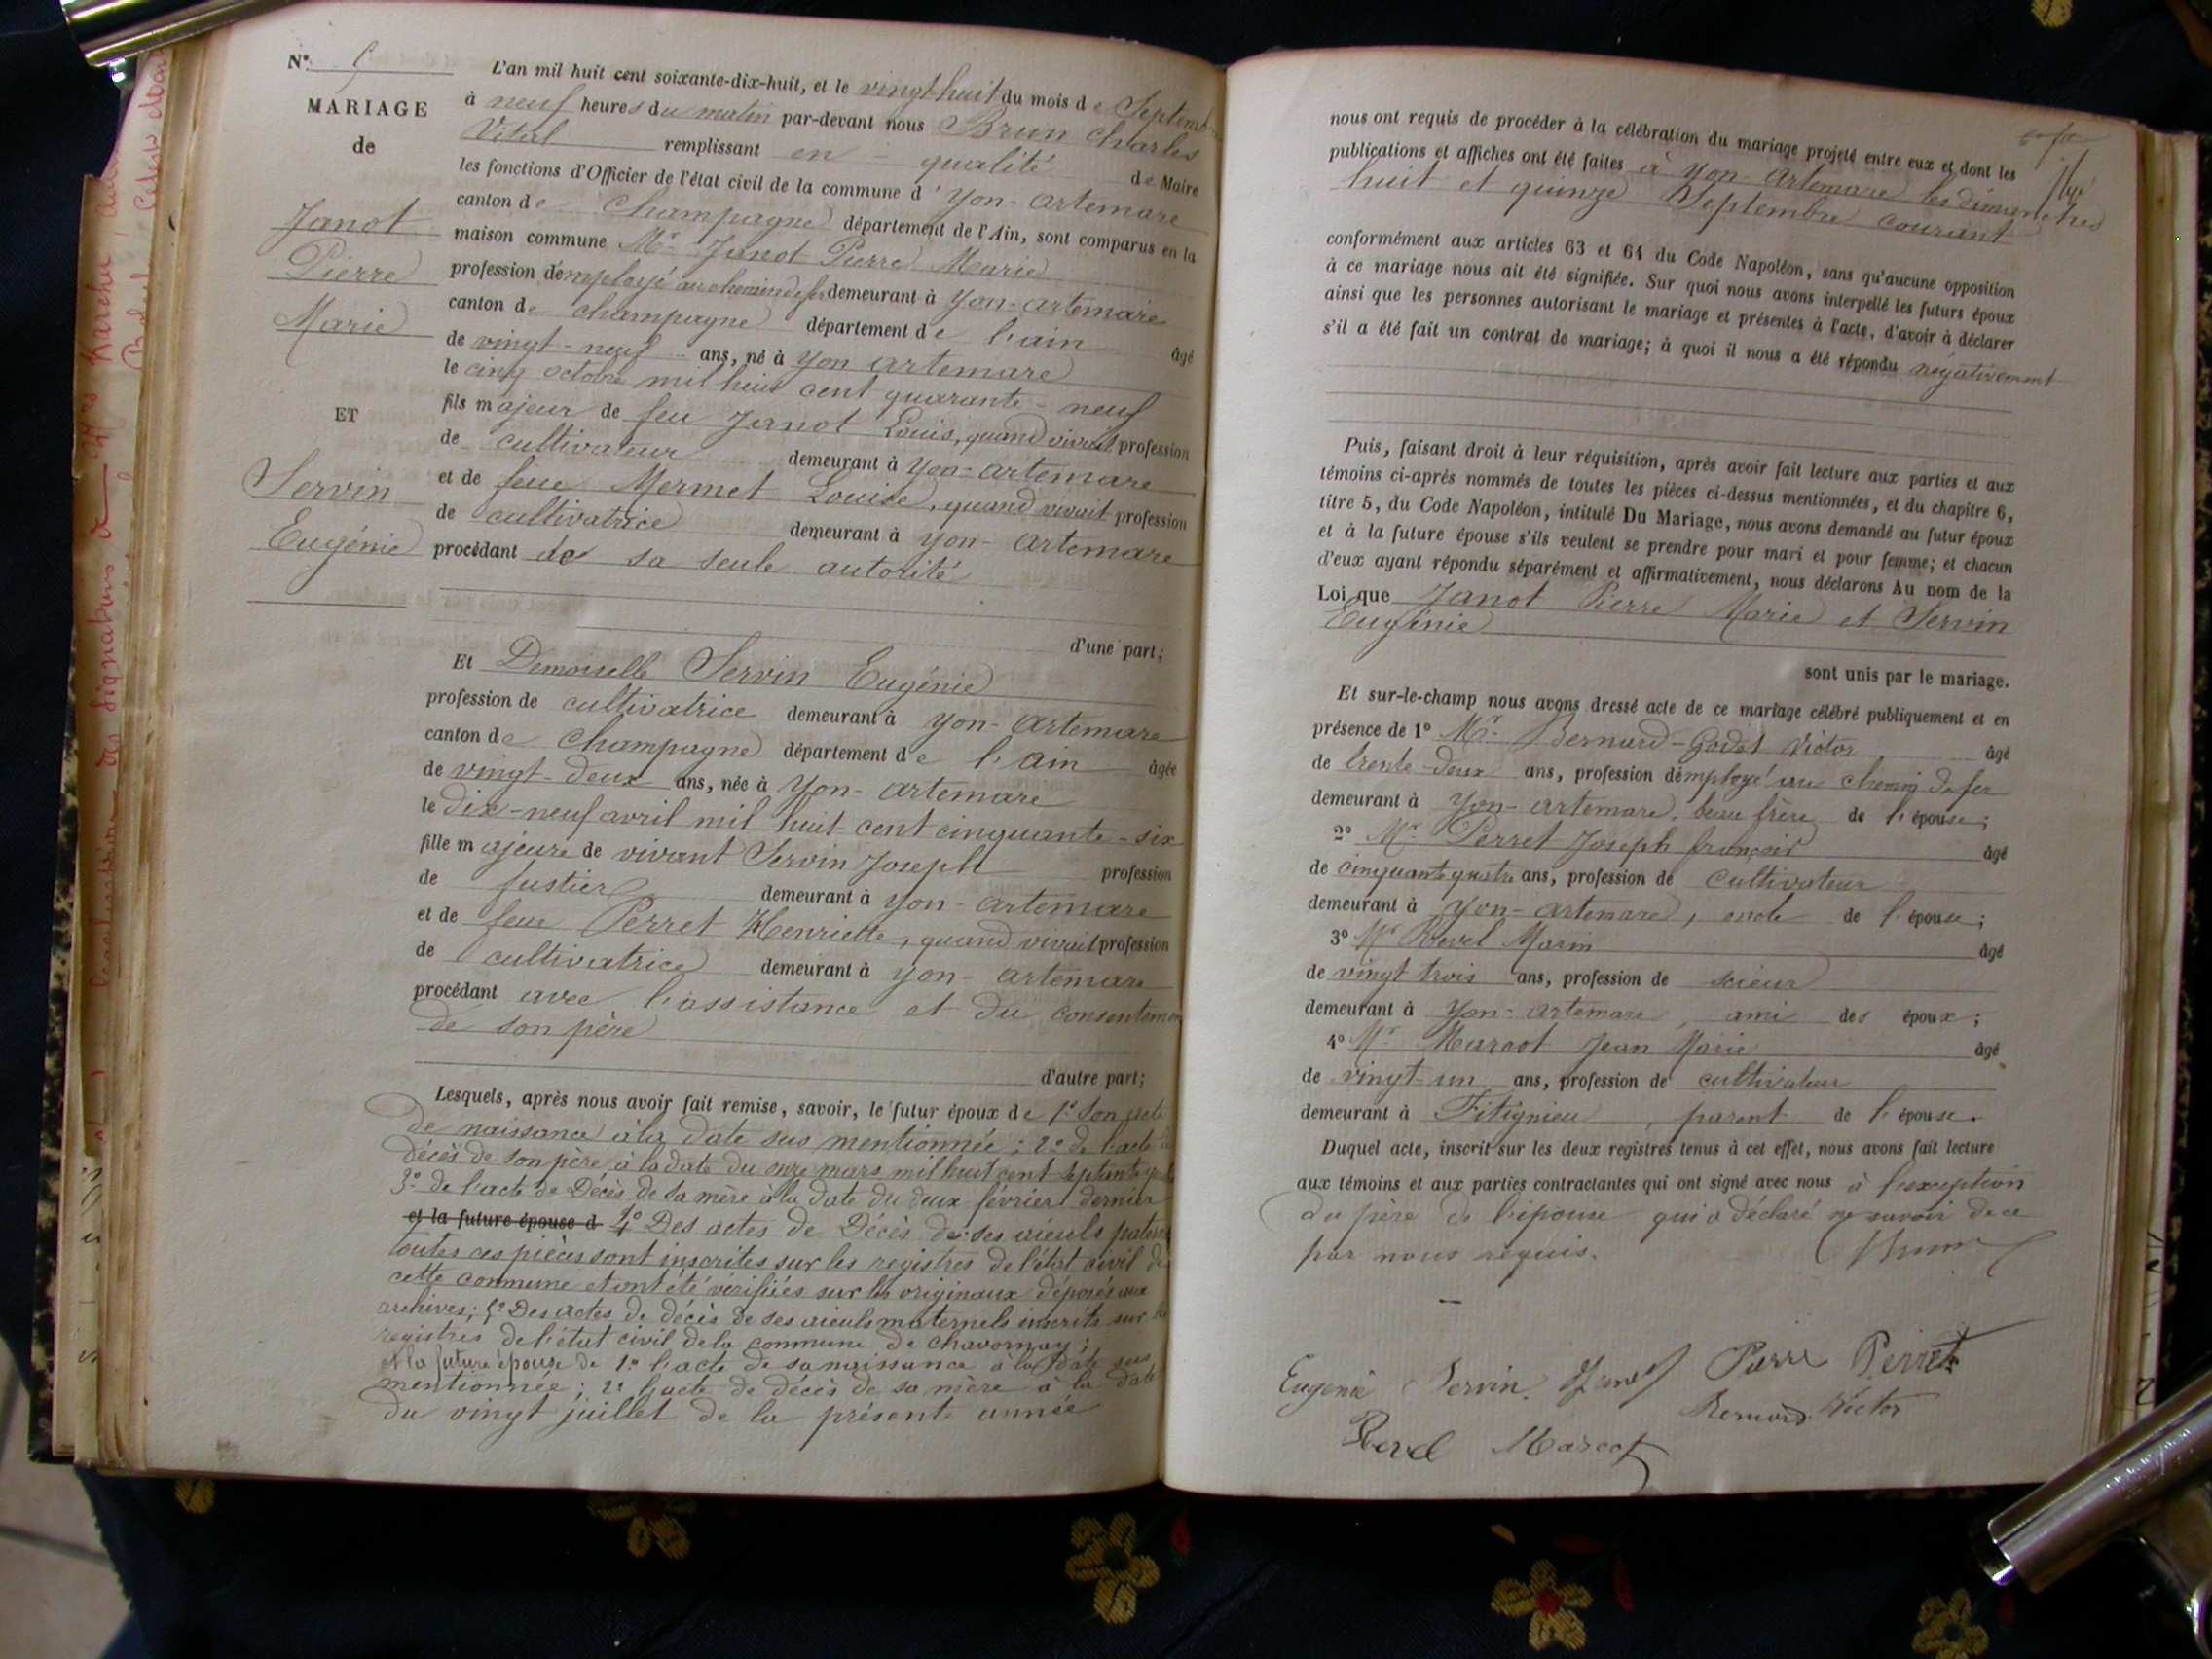 N°
MARIAGE
de
Janot
Pierre
Marie
ET
Servin
Eugénie
L'an mil huit cent soixante-dix-huit, et le vingt-huit du mois de Septemb
à neuf heures du matin par-devant nous Brun Charles
Vital remplissant en qualité de Maire
les fonctions d'Officier de l'état civil de la commune d'Yon-artemare
canton de Champagne département de l'Ain, sont comparus en la
maison commune Mr Janot Pierre Marie
profession d'employé au chemin de fer demeurant à Yon-artemare
canton de champagne département de l'ain âgé
de vingt-neuf ans, né à Yon artemare
le cinq octobre mil huit cent quarante-neuf
fils majeur de feu Janot Louis, quand vivait profession
de cultivateur demeurant à Yon-artemare
et de feue Mermet Louise, quand vivait profession
de cultivatrice demeurant à Yon-artemare
procédant de sa seule autorité
d'une part;
Et Demoiselle Servin Eugénie
profession de cultivatrice demeurant à Yon-artemare
canton de Champagne département de l'Ain âgée
de vingt-deux ans, née à Yon-artemare
le dix-neuf avril mil huit cent cinquante-six
fille majeure de vivant Servin Joseph profession
de fustier demeurant à Yon-artemare
et de feue Perret Henriette, quand vivait profession
de cultivatrice demeurant à Yon-artemare
procédant avec l'assistance et du consentemen
de son père
d'autre part;
Lesquels, après nous avoir fait remise, savoir, le futur époux de 1° Son acte
de naissance à la date sus mentionnée; 2° de l'acte de
décès de son père à la date du onze mars mil huit cent septante
3° de l'acte de Décès de sa mère à la date du deux février dernier
et la future épouse d 4° Des actes de Décès de ses aieuls patern
toutes ces pièces sont inscrites sur les registres de l'état civil de
cette commune et ont été vérifiées sur les originaux déposés aux
archives; 5° Des actes de décès de ses aieuls maternels inscrits sur les
registres de l'état civil de la commune de Chavornay;
et la future épouse de 1° l'acte de sa naissance à la date sus
mentionnée; 2° l'acte de décès de sa mère à la date
du vingt juillet de la présente année
nous ont requis de procéder à la célébration du mariage projeté entre eux et dont les
publications et affiches ont été faites à Yon-artemare les dimanches
huit et quinze Septembre courant
conformément aux articles 63 et 64 du Code Napoléon, sans qu'aucune opposition
à ce mariage nous ait été signifiée. Sur quoi nous avons interpellé les futurs époux
ainsi que les personnes autorisant le mariage et présentes à l'acte, d'avoir à déclarer
s'il a été fait un contrat de mariage; à quoi il nous a été répondu négativement
Puis, faisant droit à leur réquisition, après avoir fait lecture aux parties et aux
témoins ci-après nommés de toutes les pièces ci-dessus mentionnées, et du chapitre 6,
titre 5, du Code Napoléon, intitulé Du Mariage, nous avons demandé au futur époux
et à la future épouse s'ils veulent se prendre pour mari et pour femme; et chacun
d'eux ayant répondu séparément et affirmativement, nous déclarons Au nom de la
Loi que Janot Pierre Marie et Servin
Eugénie
sont unis par le mariage.
Et sur-le-champ nous avons dressé acte de ce mariage célébré publiquement et en
présence de 1° Mr Bernard-Godet Victor âgé
de trente-deux ans, profession d'employé au chemin de fer
demeurant à Yon-artemare, beau frère de l'épouse;
2° Mr Perret Joseph françois âgé
de cinquante quatre ans, profession de cultivateur
demeurant à Yon-artemare, oncle de l'épouse;
3° Mr Revel Marin âgé
de vingt trois ans, profession de scieur
demeurant à Yon-artemare, ami des époux;
4° Mr Marcot Jean Marie âgé
de vingt-un ans, profession de cultivateur
demeurant à Fitignieu, parent de l'épouse.
Duquel acte, inscrit sur les deux registres tenus à cet effet, nous avons fait lecture
aux témoins et aux parties contractantes qui ont signé avec nous à l'exception
du père de l'épouse qui a déclaré ne savoir de ce
par nous requis. Brun
Eugénie Servin. Janot Pierre Perret
Bernard Victor
Revel Marcot